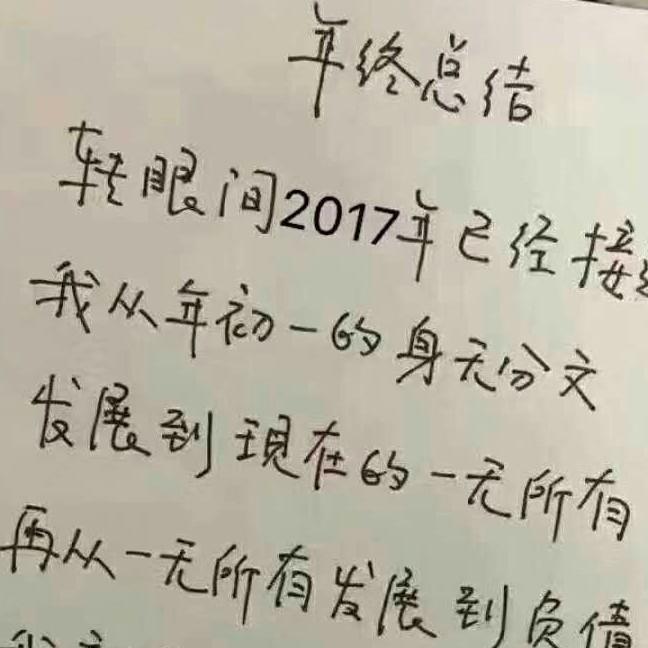 年终总结
转眼间2017年已经接
我从年初一的身无分文
发展到现在的一无所有
再从一无所有发展到负债